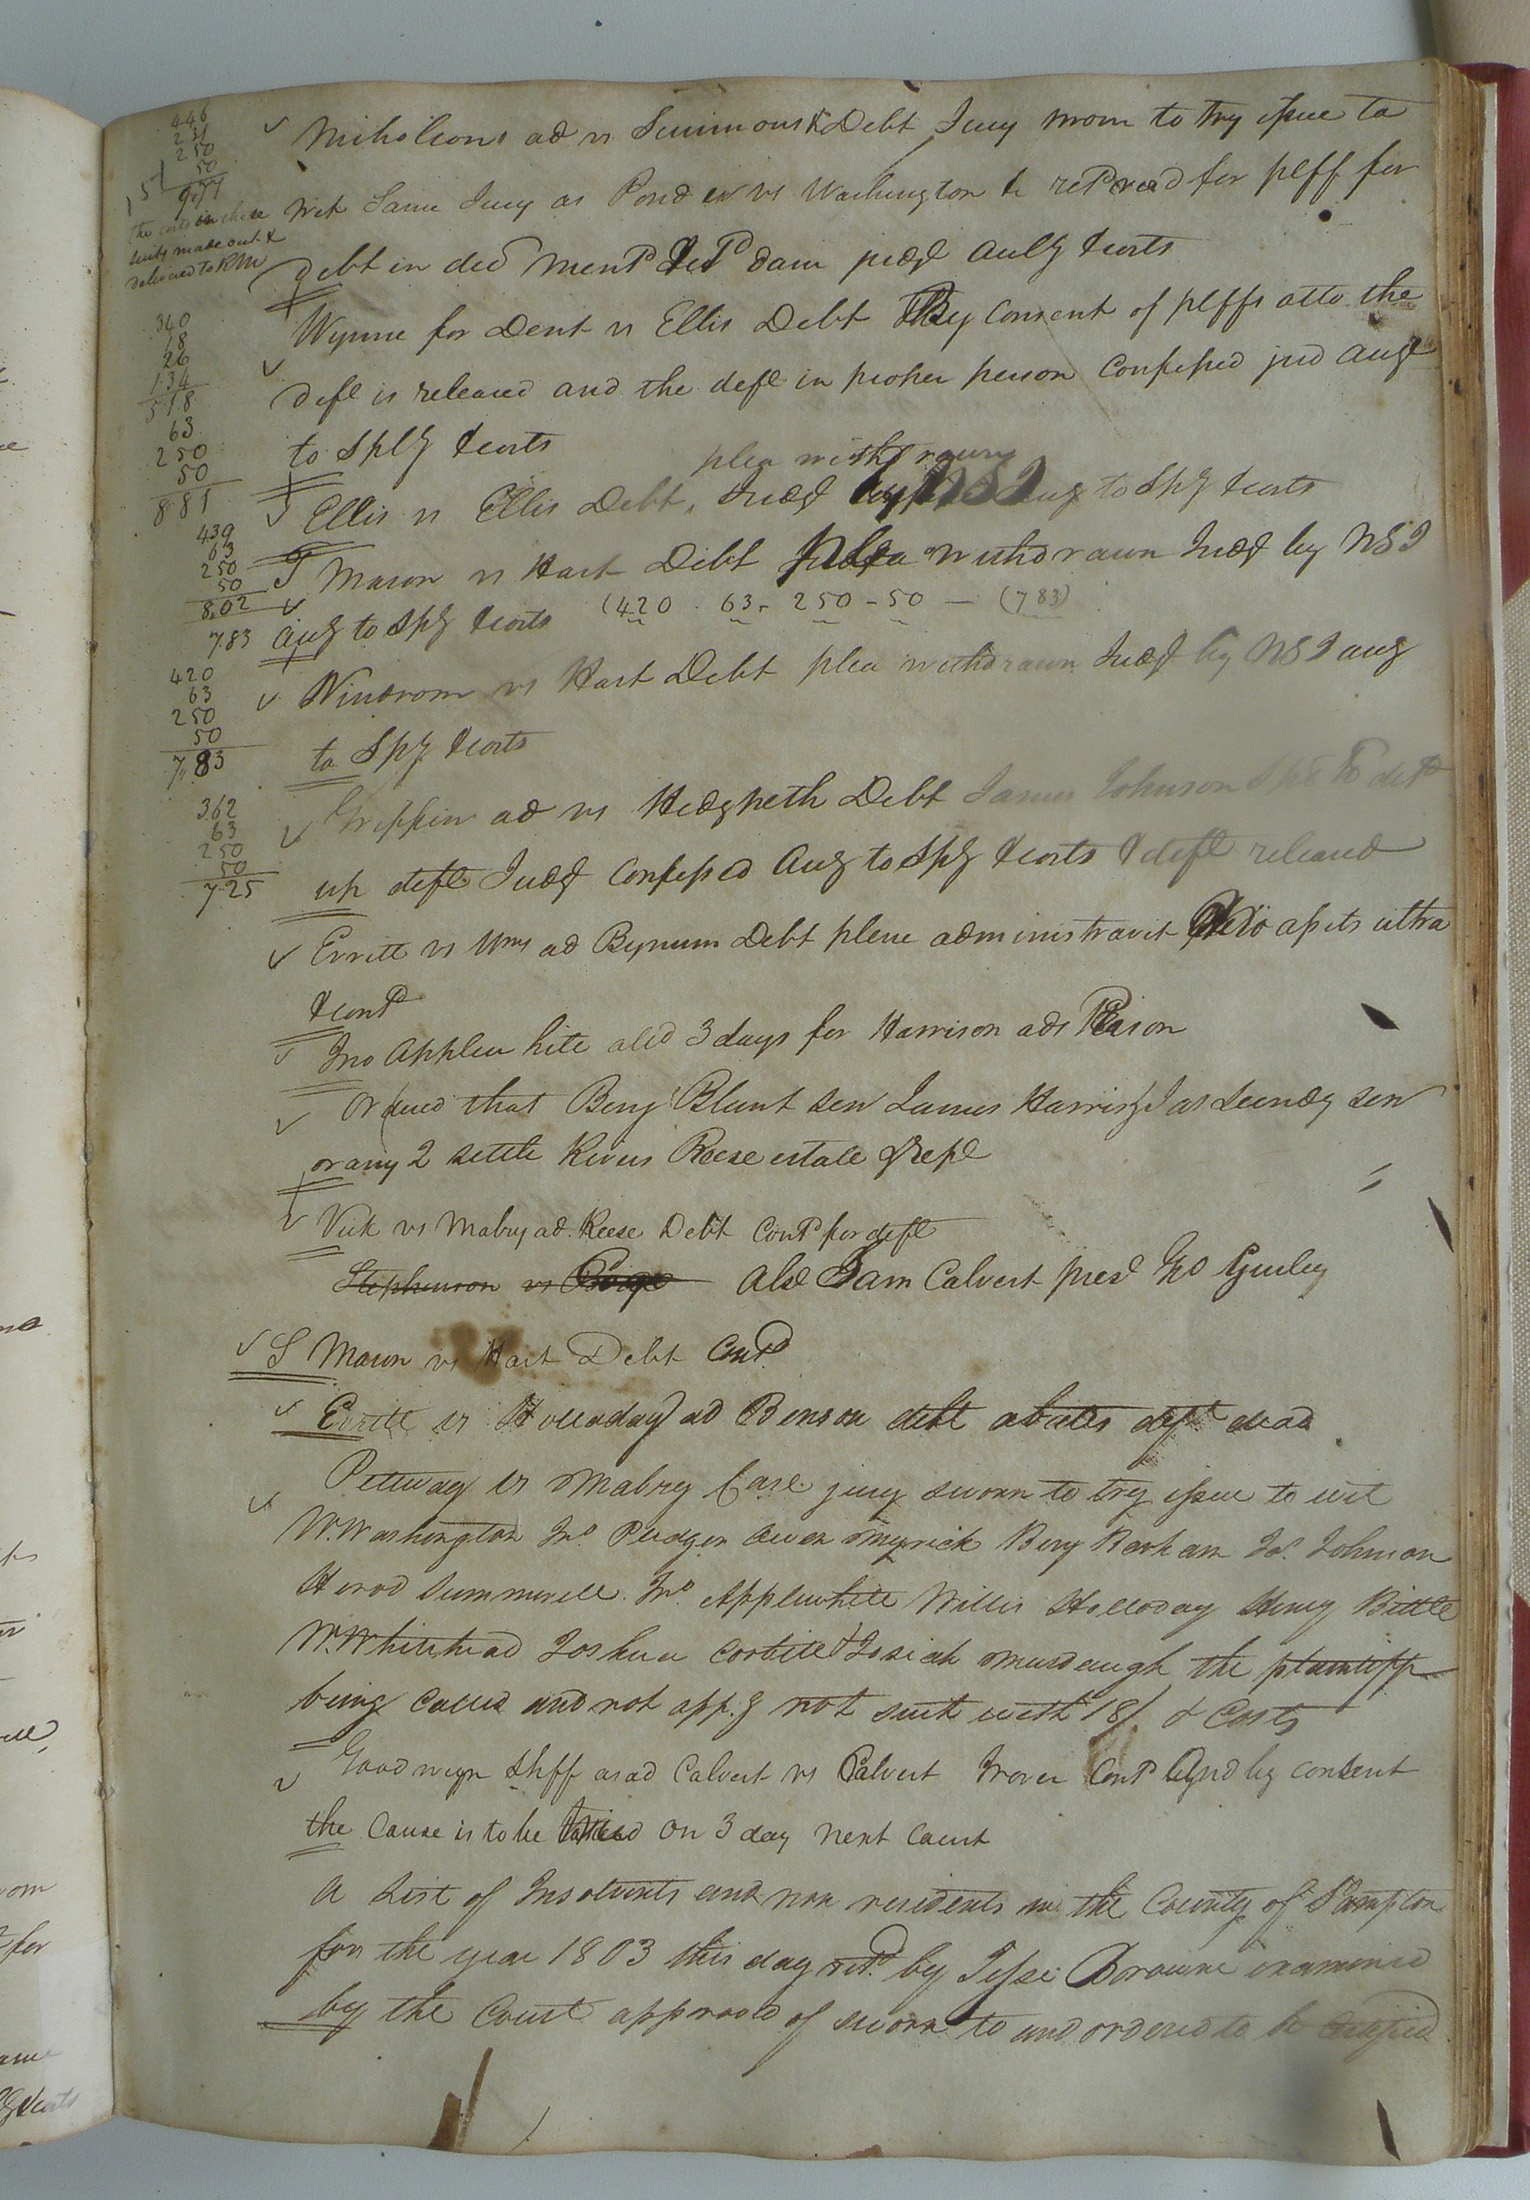 446
231
250
50
977
the costs in these
suits made out &
delivered to RM
Nicholsons ad vs Simmons Debt Jury sworn to try issue to
wit Same Jury as Pond ex vs Washington & retd verd for plff for
Debt in dec ment & dam judgt accg & costs
Wynne for Dent vs Ellis Debt By Consent of plffs atto the
340
18
26
134
518
63
250
50
881
Deft is released and the deft in proper person Confessed jud
to Spy & costs
plea withdrawn
Ellis vs Ellis Debt, Judgt to Spy & costs
439
63
250
50
802
783
T Mason vs Hart Debt plea withdrawn Judgt by NSI
aug to Spy & costs (420 . 63 - 250 - 50 — (783)
420
63
250
50
783
Windrom vs Hart Debt plea withdrawn Judgt by NSI aug
to Spy & costs
362
63
250
50
725
Griffin ad vs Hedgpeth Debt James Johnson
up deft Judgt Confessed aug to Spy & costs & deft released
Erritt vs Wms ad Bynum Debt plene administravit assets ultra
& contd
Jno Applewhite 3 days for Harrison ads Eason
Ordered that Benj Blunt sen James Harris & Jas Gundy sen
or any 2 settle Rivers Reese estate & Rept
Vick vs Mabry ad. Reese Debt Contd for deft
Stephenson vs Abst Sam Calvert prest Go Gurley
S Mason vs Hart Debt Contd
Erritt vs Holladay ad Benson debt abates deft dead
Pettway vs Mabry Case jury sworn to try issue to wit
W. Washington Jno. Pudgen Owen Myrick Benj Barham Jos. Johnson
Herod Summerell Jno. Applewhite Willis Holloday Henry Bittle
W. Whitehead Joshua Corbitt & Josiah Murdaugh the plaintiff
being called and not appg not suit with 18/ & Costs
Goodwyn Shff as ad Calvert vs Calvert Trover Contd And by consent
the Cause is to be tried on 3 day next Court
A List of Insolvents and non residents in the County of Sampton
for the year 1803 this day retd. by Jesse Browne examined
by the Court approved of sworn to and ordered to be certified